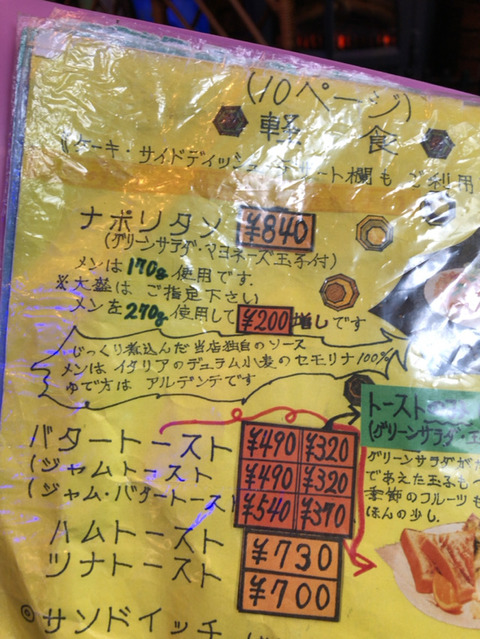 (10ページ)
軽食
ナポリタン ¥840
(グリーンサラダ・マヨネーズ玉子付)
メンは170g使用です.
※大盛は ご指定下さい
メンを270g使用して ¥200増しです
じっくり煮込んだ当店独自のソース
メンは イタリアのデュラム小麦のセモリナ100%
ゆで方は アルデンテです
バタートースト ¥490 ¥320
(ジャムトースト ¥490 ¥320
(ジャム・バタートースト ¥540 ¥370
ハムトースト ¥730
ツナトースト ¥700
◎サンドイッチ
トースト
(グリーンサラダ・
グリーンサラダが
であえた玉子も
季節のフルーツも
ほんの少し.